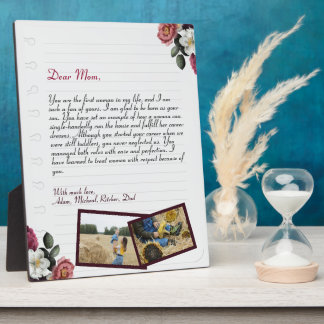 Dear Mom,
You are the first woman in my life, and I am
such a fan of yours. I am glad to be born as your
son. You have set an example of how a woman can
single-handedly run the house and fulfill her career
dreams. Although you started your career when we
were still toddlers, you never neglected us. You
managed both roles with ease and perfection. I
have learned to treat women with respect because of
you.
With much love,
Adam, Micheal, Kitcher, Dad